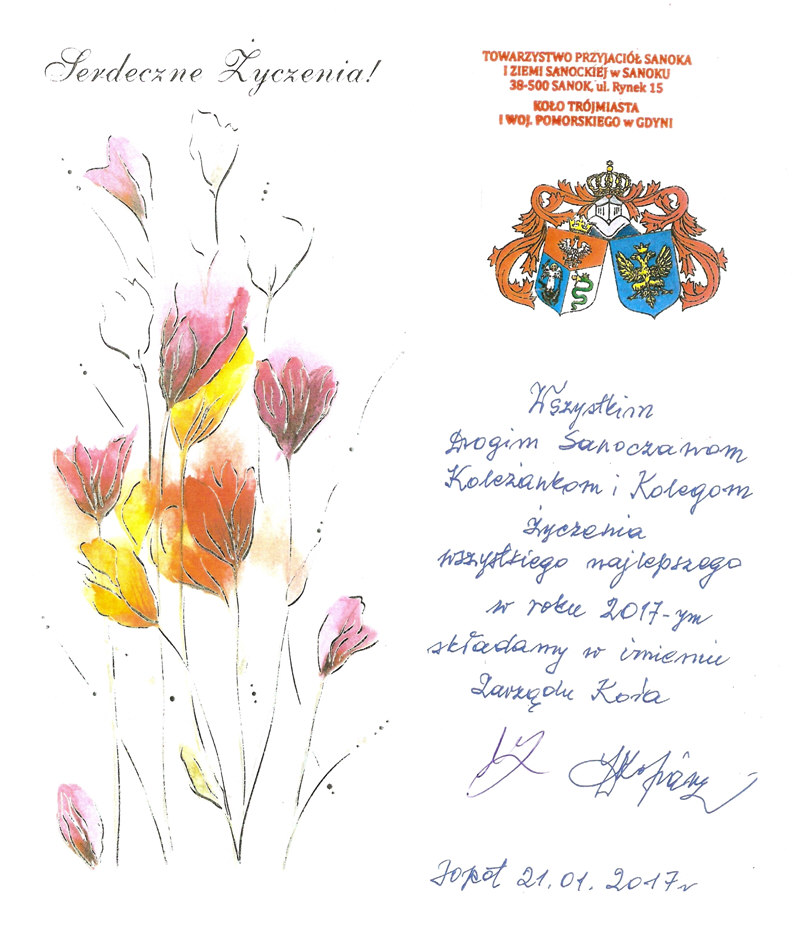 Serdeczne Życzenia!
TOWARZYSTWO PRZYJACIÓŁ SANOKA
I ZIEMI SANOCKIEJ w SANOKU
38-500 SANOK, ul. Rynek 15
KOŁO TRÓJMIASTA
I WOJ. POMORSKIEGO w GDYNI
Wszystkim
Drogim Sanoczanom
Koleżankom i Kolegom
Życzenia
wszystkiego najlepszego
w roku 2017-ym
składamy w imieniu
Zarządu Koła
Sopot 21.01.2017r